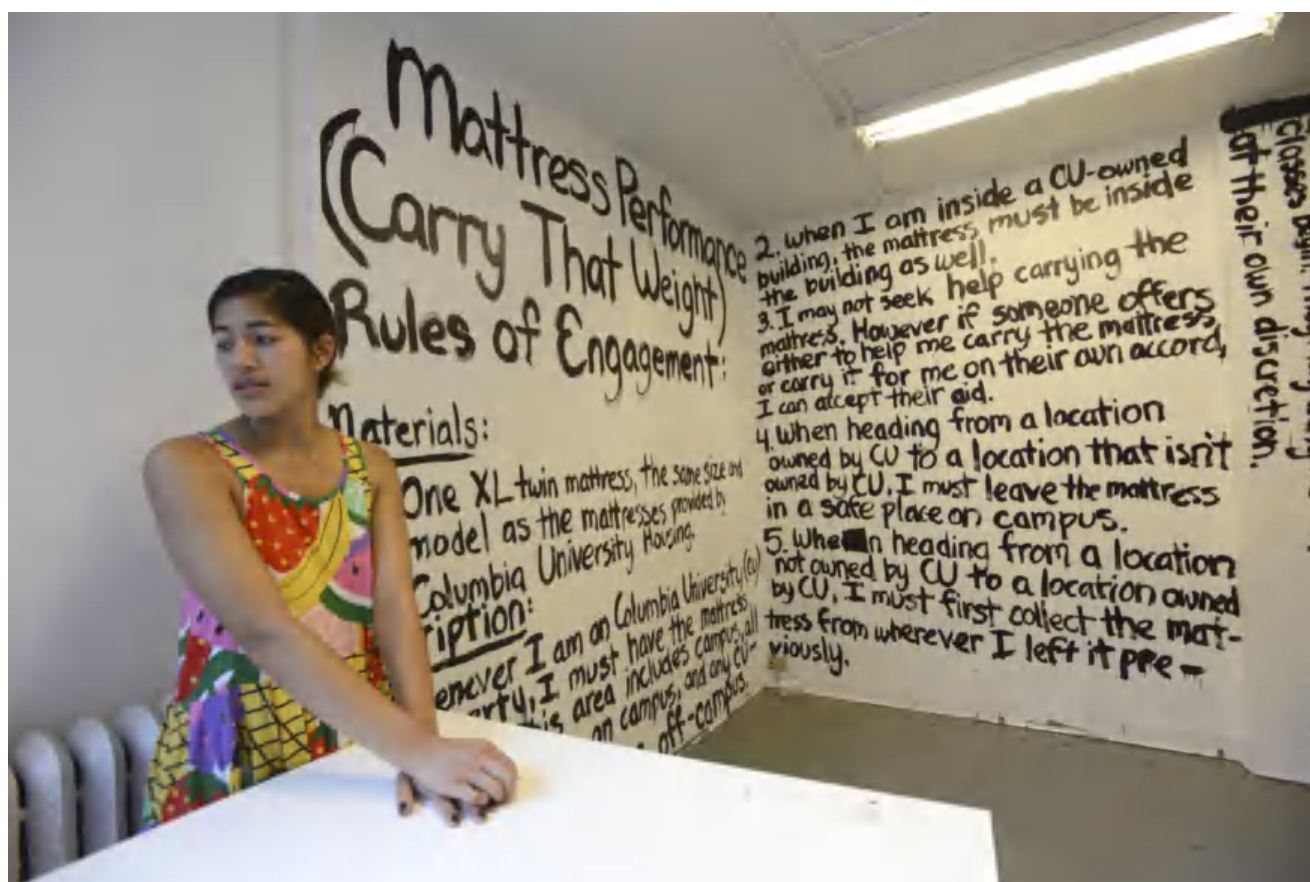 Mattress Performance
(Carry That Weight)
Rules of Engagement:
Materials:
One XL twin mattress, the same size and
model as the mattresses provided by
Columbia University Housing.
ription:
enever I am on Columbia University (CU)
erty, I must have the mattress
this area includes campus, all
on campus, and any CU-
off-campus.
2. When I am inside a CU-owned
building, the mattress must be inside
the building as well.
3. I may not seek help carrying the
mattress. However if someone offers
either to help me carry the mattress,
or carry it for me on their own accord,
I can accept their aid.
4. When heading from a location
owned by CU to a location that isn't
owned by CU, I must leave the mattress
in a safe place on campus.
5. When heading from a location
not owned by CU to a location owned
by CU, I must first collect the mat-
tress from wherever I left it pre-
viously.
classes begin
at their own discretion.